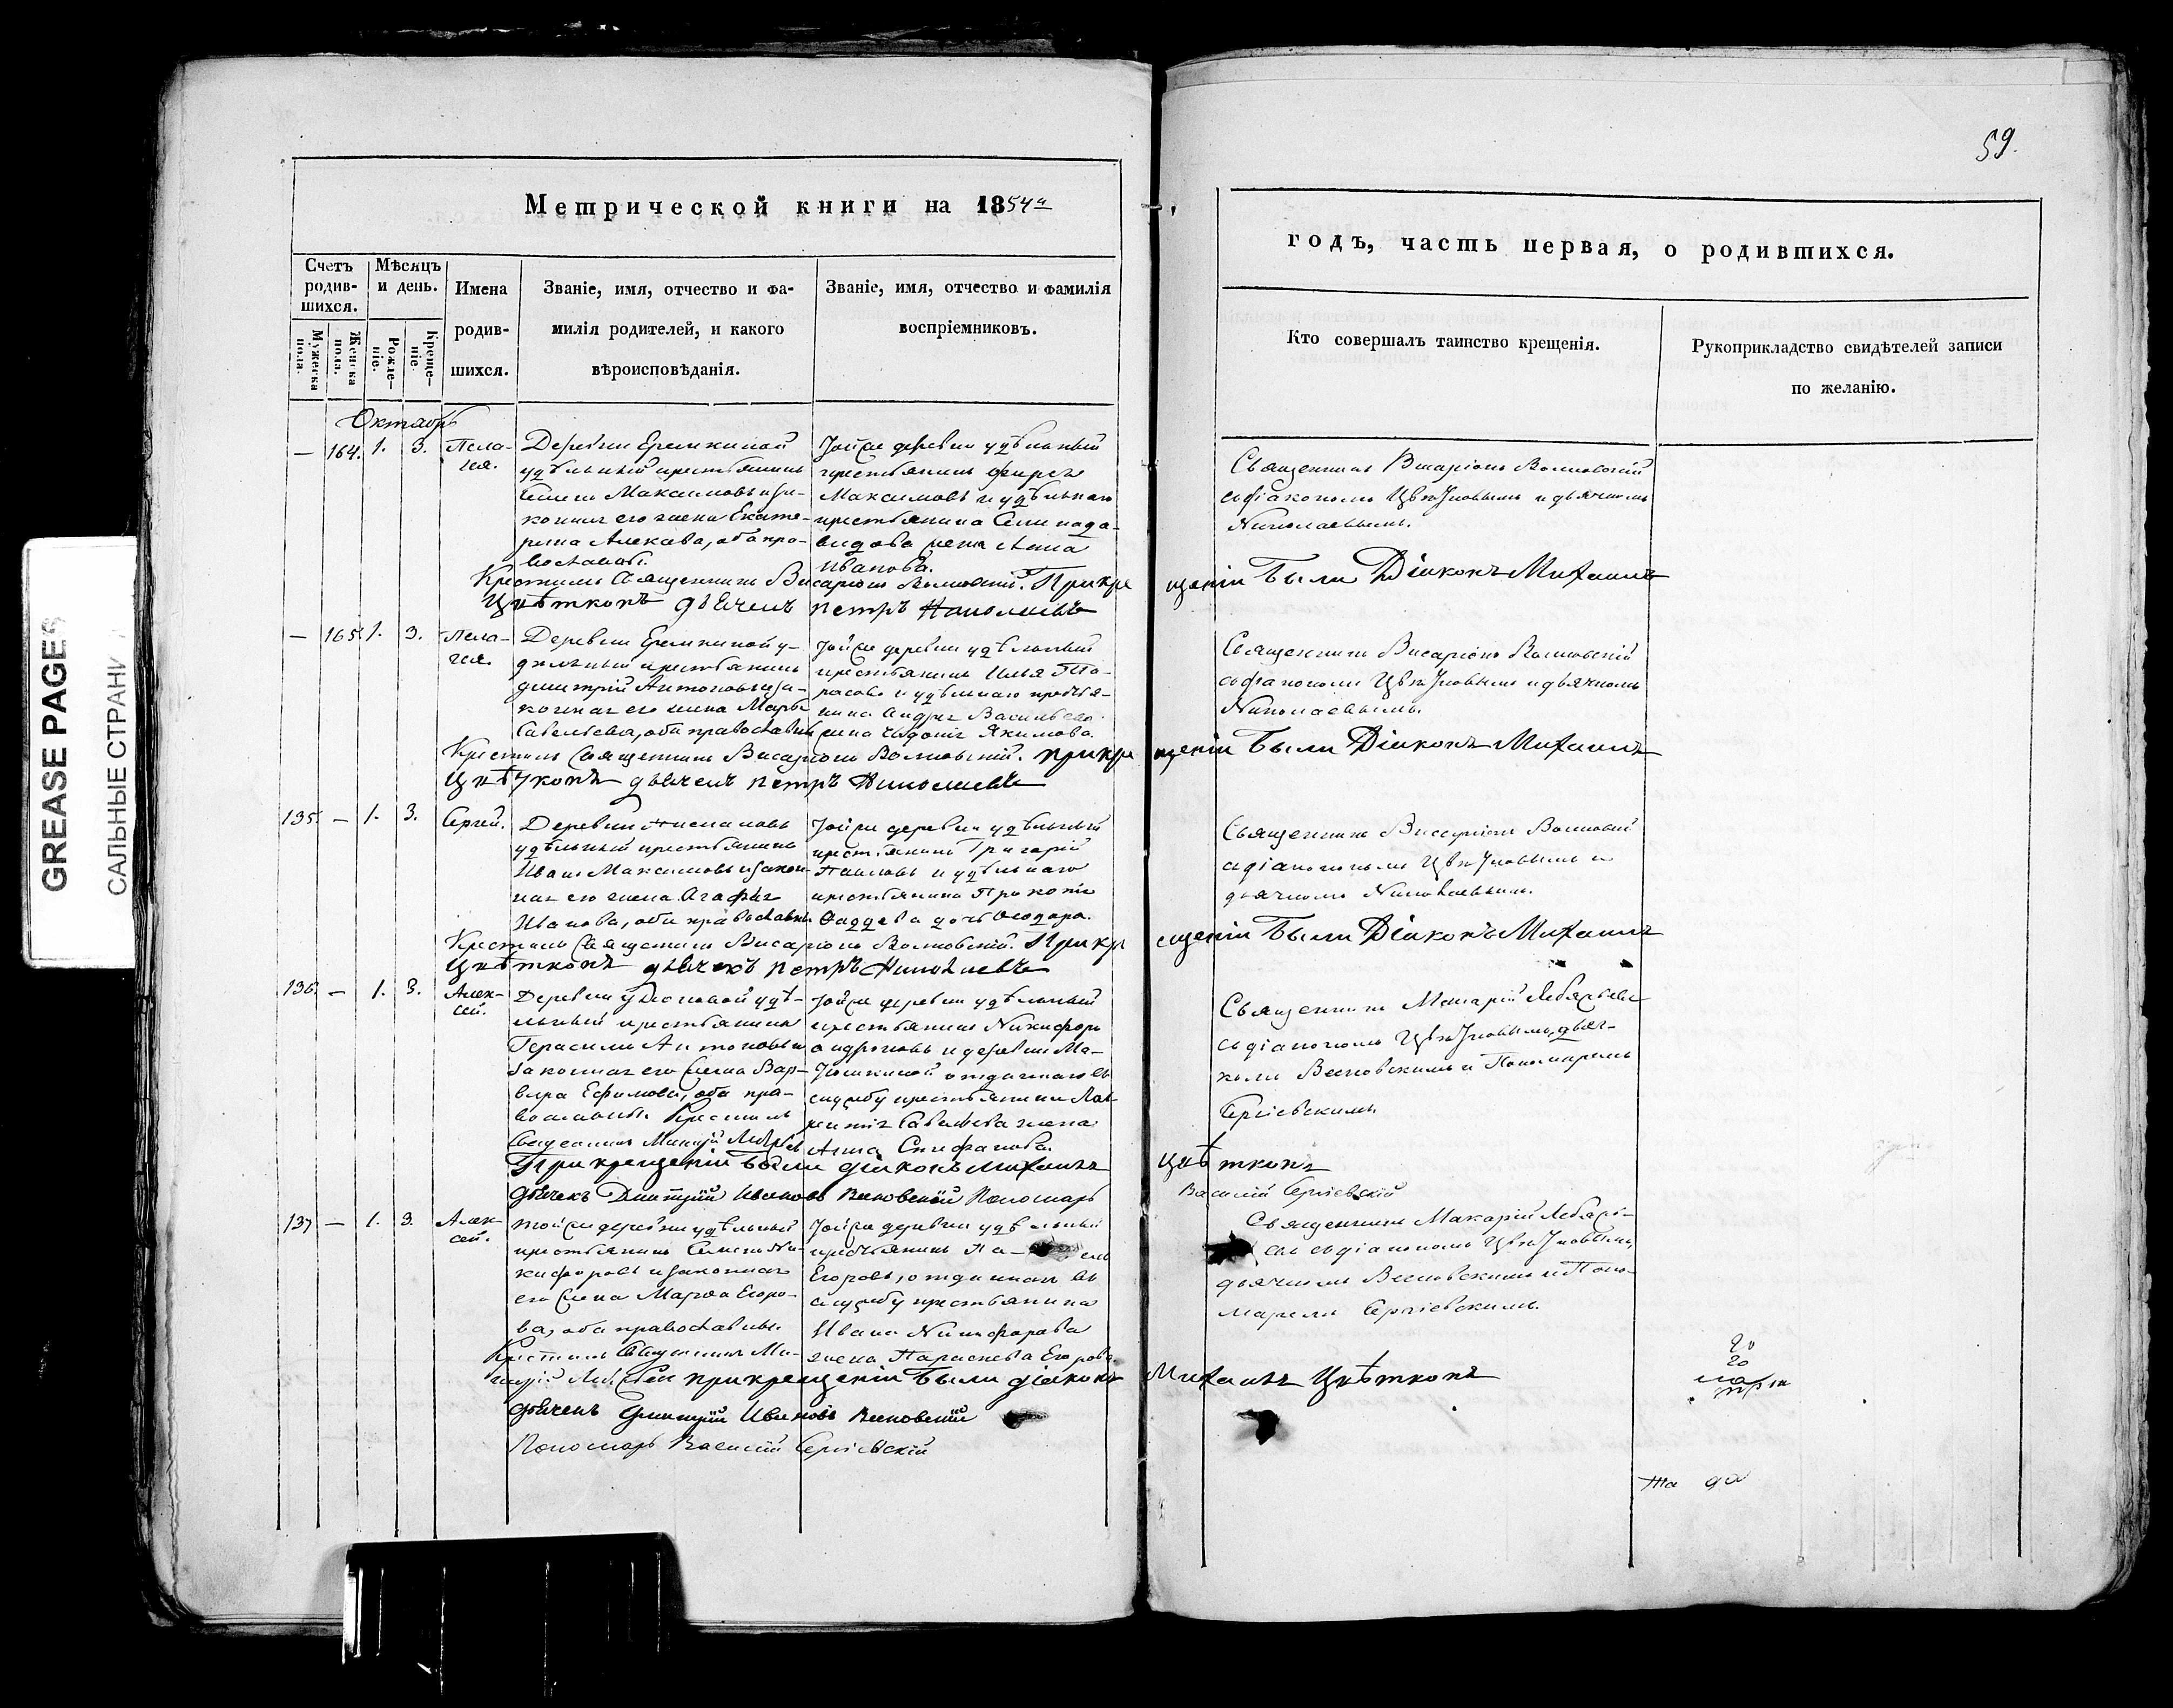 GREASE PAGES
САЛЬНЫЕ СТРАНИ
59.
Метрической книги на 1854й
годъ, часть первая, о родившихся.
Счетъ родив-
шихся.
Мужеска пола.
Женска пола.
Мѣсяцъ и день.
Рожде-
ніе.
Креще-
ніе.
Имена
родив-
шихся.
Званіе, имя, отчество и фа-
милія родителей, и какого
вѣроисповѣданія.
Званіе, имя, отчество и фамилія
воспріемниковъ.
Кто совершалъ таинство крещенія.
Рукоприкладство свидѣтелей записи
по желанію.
Октябрь
— 164. 1. 3.
Пела-
гея.
Деревни Еремкиной
удѣльный крестьянинъ
Максимовъ и за-
конная его жена Екате-
рина Алек ва, оба пра-
вославные.
Той же деревни удѣльный
крестьянинъ Фирсъ
Максимовъ и удѣльнаго
крестьянина
жена Анна
Иванова.
Священникъ Висаріонъ Волковскій
съ діакономъ Цвѣтковымъ и дьячкомъ
Николаевымъ.
Крестилъ Священникъ Висаріонъ Волковскій. При кре
щеніи были Діаконъ Михаилъ
Цвѣтковъ дьячекъ Петръ Николаевъ
— 165. 1. 3.
Пела-
гея.
Деревни Еремкиной у-
дѣльный крестьянинъ
Дмитрій Антоновъ и за-
конная его жена Марья
Савельева, оба православные
Той же деревни удѣльный
крестьянинъ Илья Та-
расовъ и удѣльнаго крестья-
нина Андрея Васильева
жена Якимова.
Священникъ Висаріонъ Волковскій
съ діакономъ Цвѣтковымъ и дьячкомъ
Николаевымъ.
Крестилъ Священникъ Висаріонъ Волковскій. при кре
щеніи были Діаконъ Михаилъ
Цвѣтковъ дьячекъ Петръ Николаевъ
135. — 1. 3.
Сергей.
Деревни
удѣльный крестьянинъ
Иванъ Максимовъ и закон-
ная его жена Агафья
Иванова, оба православные
Той же деревни удѣльный
крестьянинъ Григорій
Павловъ и удѣльнаго
крестьянина Прокопія
Фаддеева дочь Феодора.
Священникъ Висаріонъ Волковскій
съ діакономъ Цвѣтковымъ и
дьячкомъ Николаевымъ.
Крестилъ Священникъ Висаріонъ Волковскій. При кр
ещеніи были Діаконъ Михаилъ
Цвѣтковъ дьячекъ Петръ Николаевъ
136. — 1. 3.
Алек-
сей.
Деревни удѣ-
льный крестьянинъ
Герасимъ Антоновъ и
законная его жена Вар-
вара Ефимова, оба пра-
вославные. Крестилъ
Священникъ Макарій
Той же деревни удѣльный
крестьянинъ Никифоръ
Андроновъ и деревни Ма-
тюшкиной отданнаго въ
службу крестьянина Лав-
рентія Савельева жена
Анна
Священникъ Макарій
съ діакономъ Цвѣтковымъ, дьяч-
комъ и Пономаремъ
Сергіевскимъ.
При крещеніи были діаконъ Михаилъ
Цвѣтковъ
дьячекъ Дмитрій Ивановъ Пономарь
Василій Сергіевскій
137 — 1. 3.
Алек-
сей.
той же деревни удѣльный
крестьянинъ Семенъ Ни-
кифоровъ и законная
его жена Марѳа Егоро-
ва, оба православные.
Той же деревни удѣльный
крестьянинъ Па-
Егоровъ, отданнаго въ
службу крестьянина
Ивана Никифорова
жена Параскева Егорова.
Священникъ Макарій
съ діакономъ Цвѣтковымъ,
дьячкомъ и Поно-
маремъ Сергіевскимъ.
Крестилъ Священникъ Ма-
карій при крещеніи были діаконъ
Михаилъ Цвѣтковъ
дьячекъ Дмитрій Ивановъ
Пономарь Василій Сергіевскій